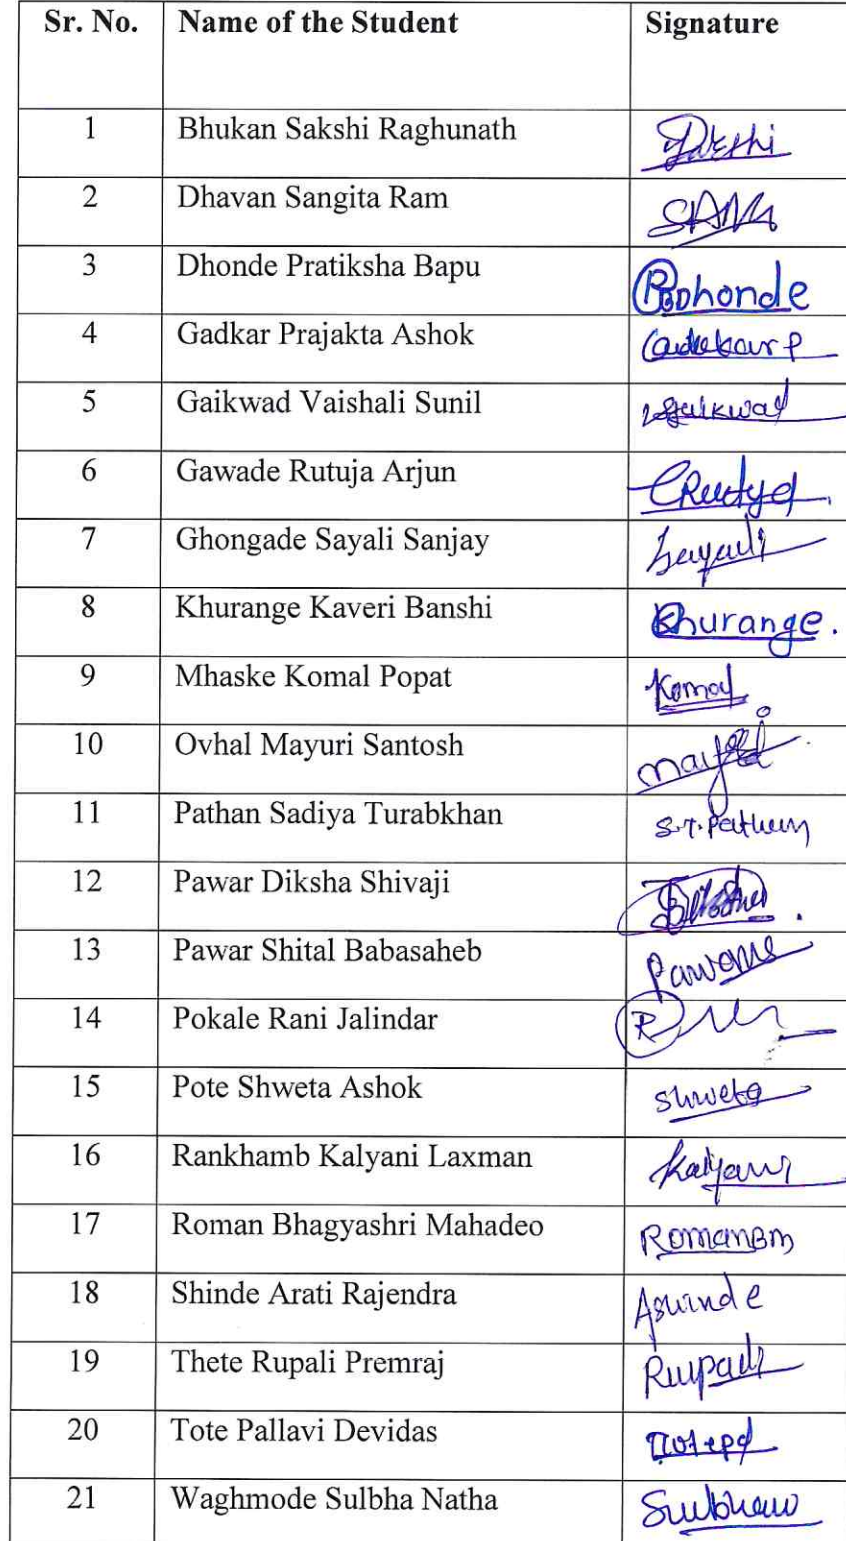 Sr. No. Name of the Student Signature
1 Bhukan Sakshi Raghunath
2 Dhavan Sangita Ram
3 Dhonde Pratiksha Bapu
4 Gadkar Prajakta Ashok
5 Gaikwad Vaishali Sunil
6 Gawade Rutuja Arjun
7 Ghongade Sayali Sanjay Sayali
8 Khurange Kaveri Banshi Khurange.
9 Mhaske Komal Popat Komal
10 Ovhal Mayuri Santosh
11 Pathan Sadiya Turabkhan S.T.Pathan
12 Pawar Diksha Shivaji
13 Pawar Shital Babasaheb
14 Pokale Rani Jalindar
15 Pote Shweta Ashok Shweta
16 Rankhamb Kalyani Laxman Kalyani
17 Roman Bhagyashri Mahadeo RomanBM
18 Shinde Arati Rajendra
19 Thete Rupali Premraj Rupali
20 Tote Pallavi Devidas
21 Waghmode Sulbha Natha